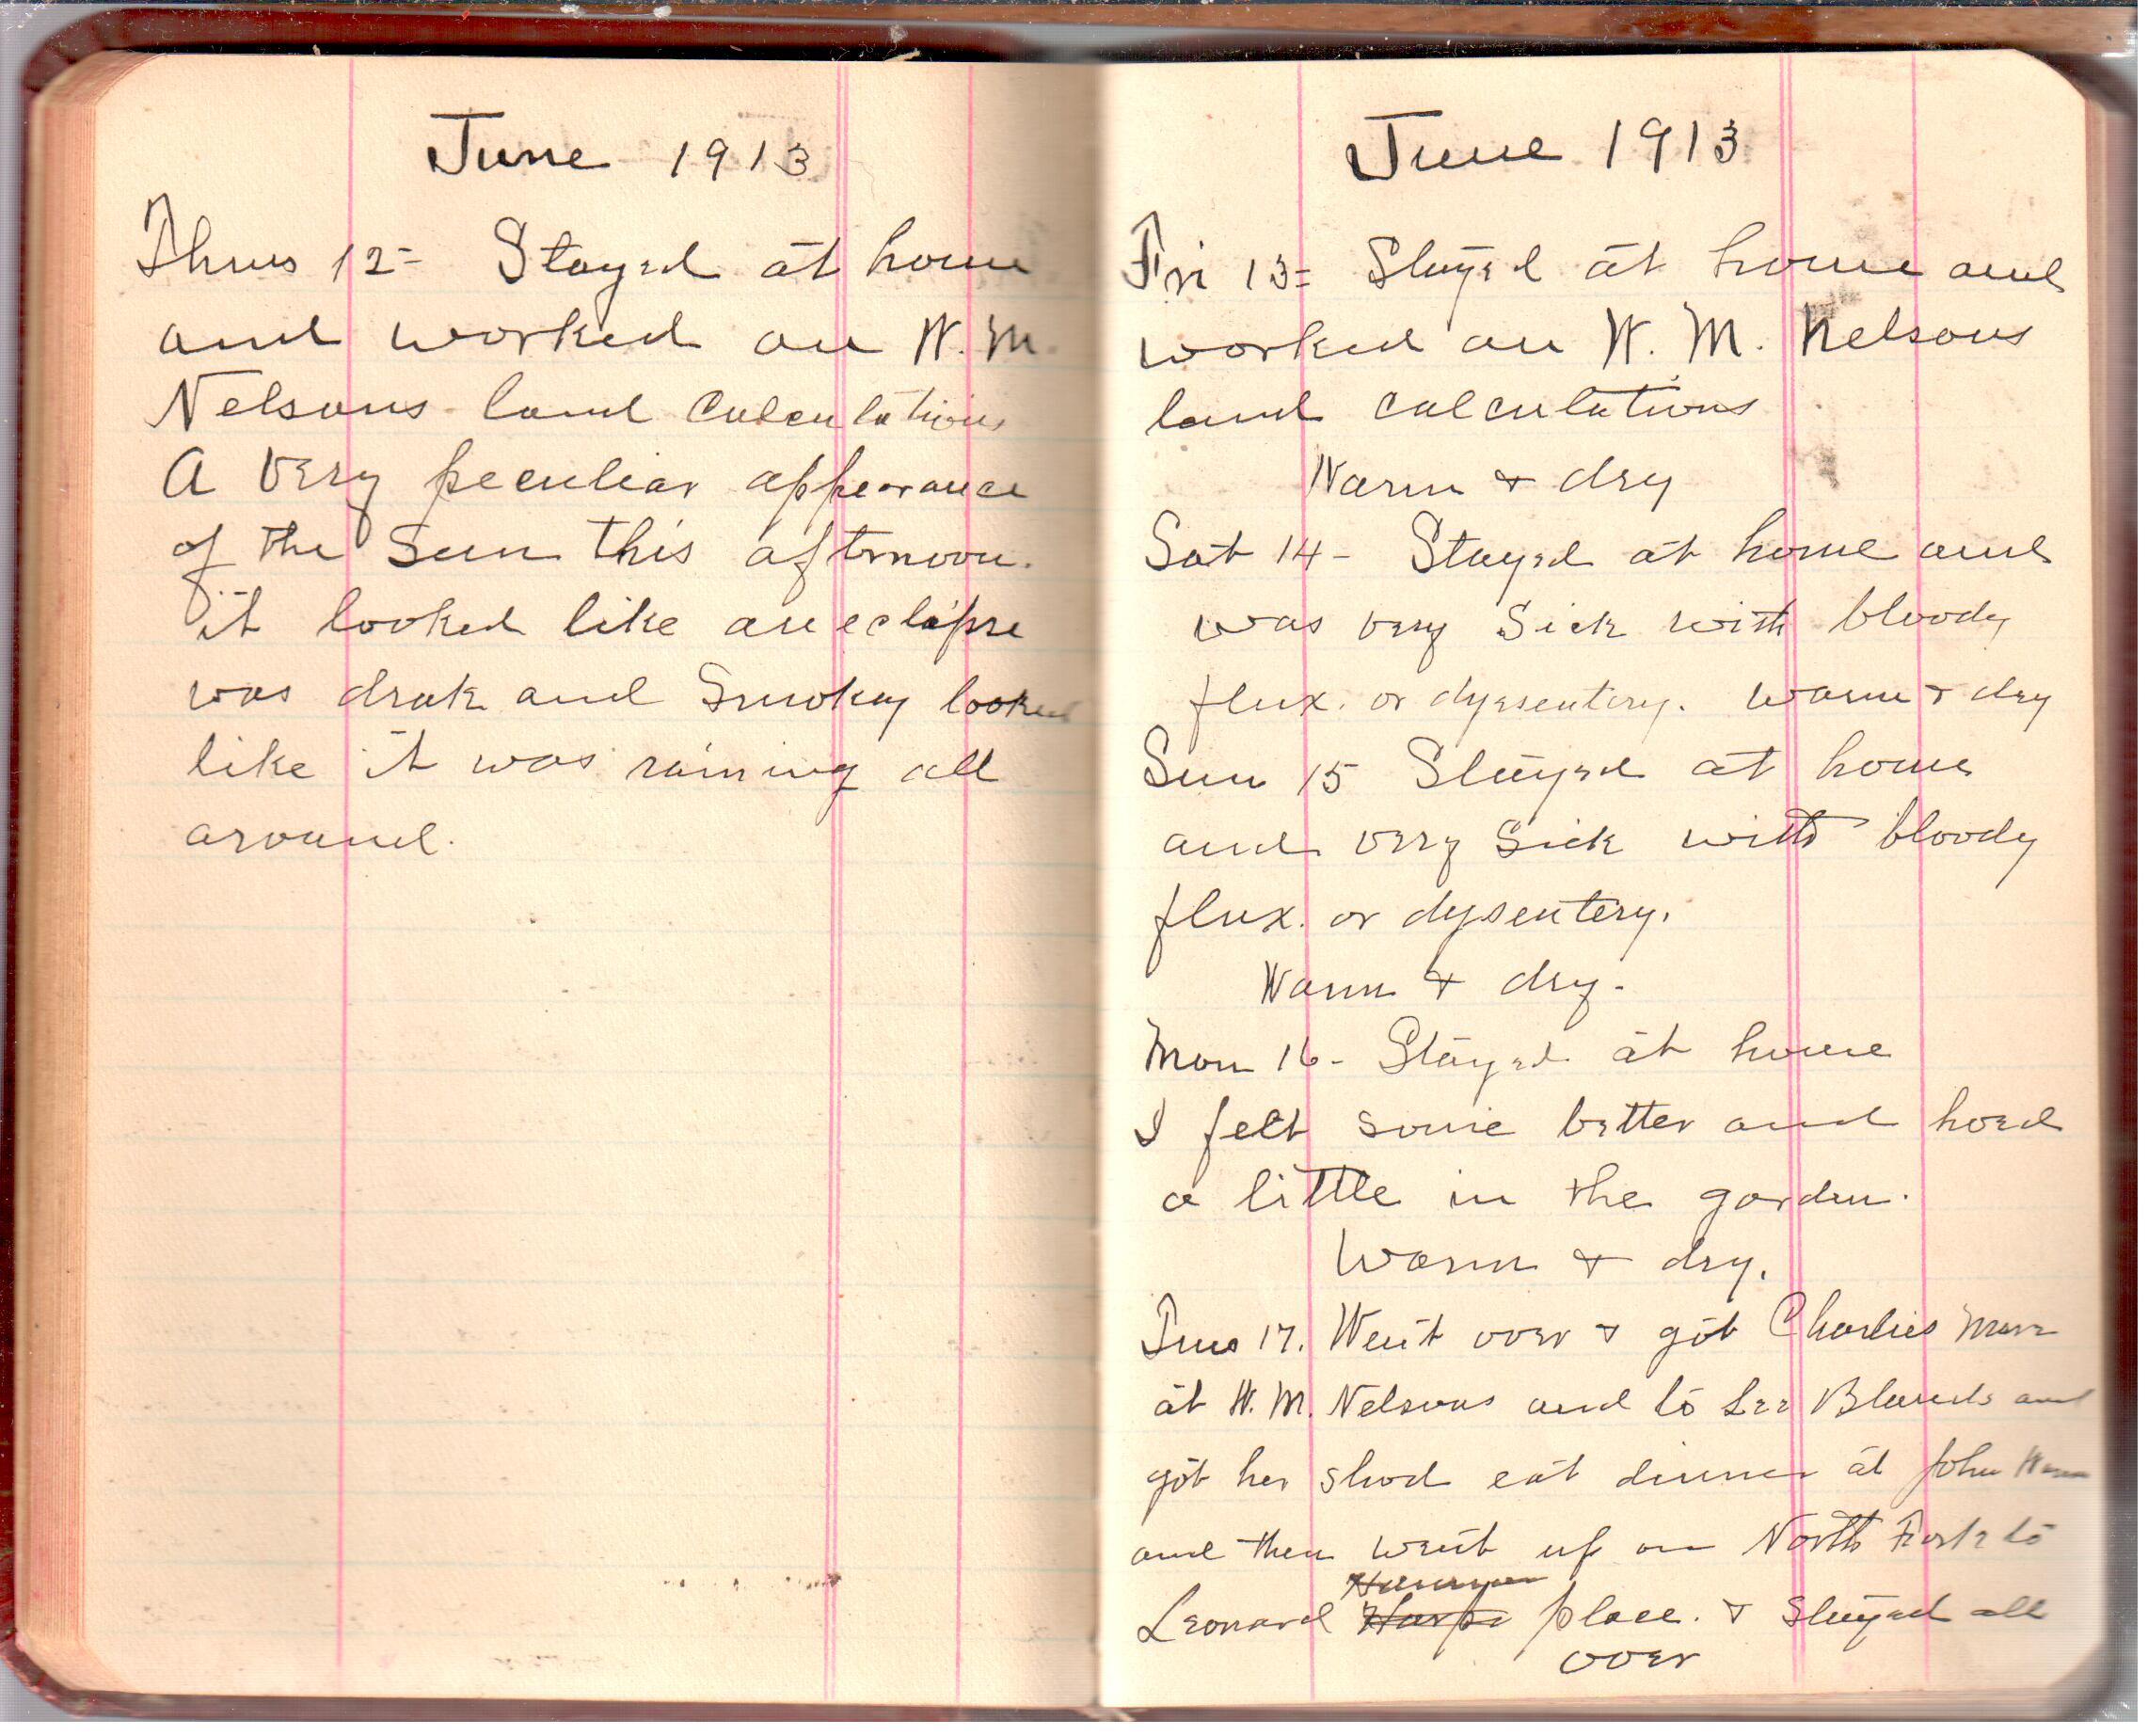 June 1913
Thurs 12- Stayed at home
and worked on W. M.
Nelsons land calculations
A very peculiar appearance
of the Sun this afternoon.
it looked like an eclipse
was drak and Smokey looked
like it was raining all
around.
June 1913
Fri 13= Stayed at home and
worked on W. M. Nelsons
land calculations
Warm & dry
Sat 14- Stayed at home and
was very Sick with bloody
flux. or dyssentery. warm & dry
Sun 15 Stayed at home
and very Sick with bloody
flux. or dysentery.
Warm & dry.
Mon 16- Stayed at home
I felt some better and hoed
a little in the garden.
Warm & dry.
Tues 17. Went over & got Charlies mare
at W. M. Nelsons and to Lee Blands and
got her shod eat dinner at John
and then went up on North Fork to
Leonard Harpe place. & stayed all
over